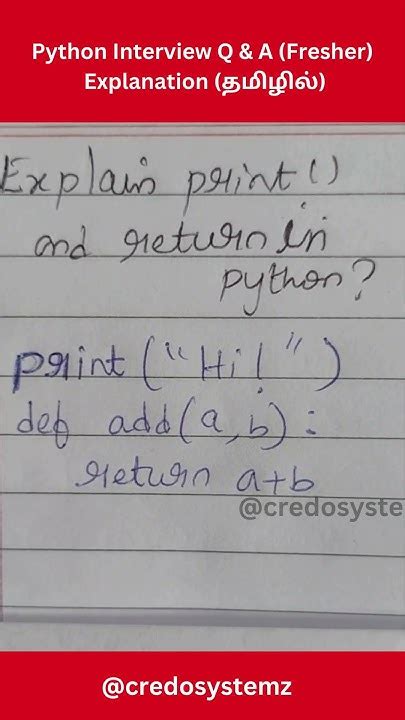 Python Interview Q & A (Fresher)
Explanation (தமிழில்)
Explain print()
and return in
python?
print ("Hi!")
def add(a,b):
return a+b
@credosyste
@credosystemz